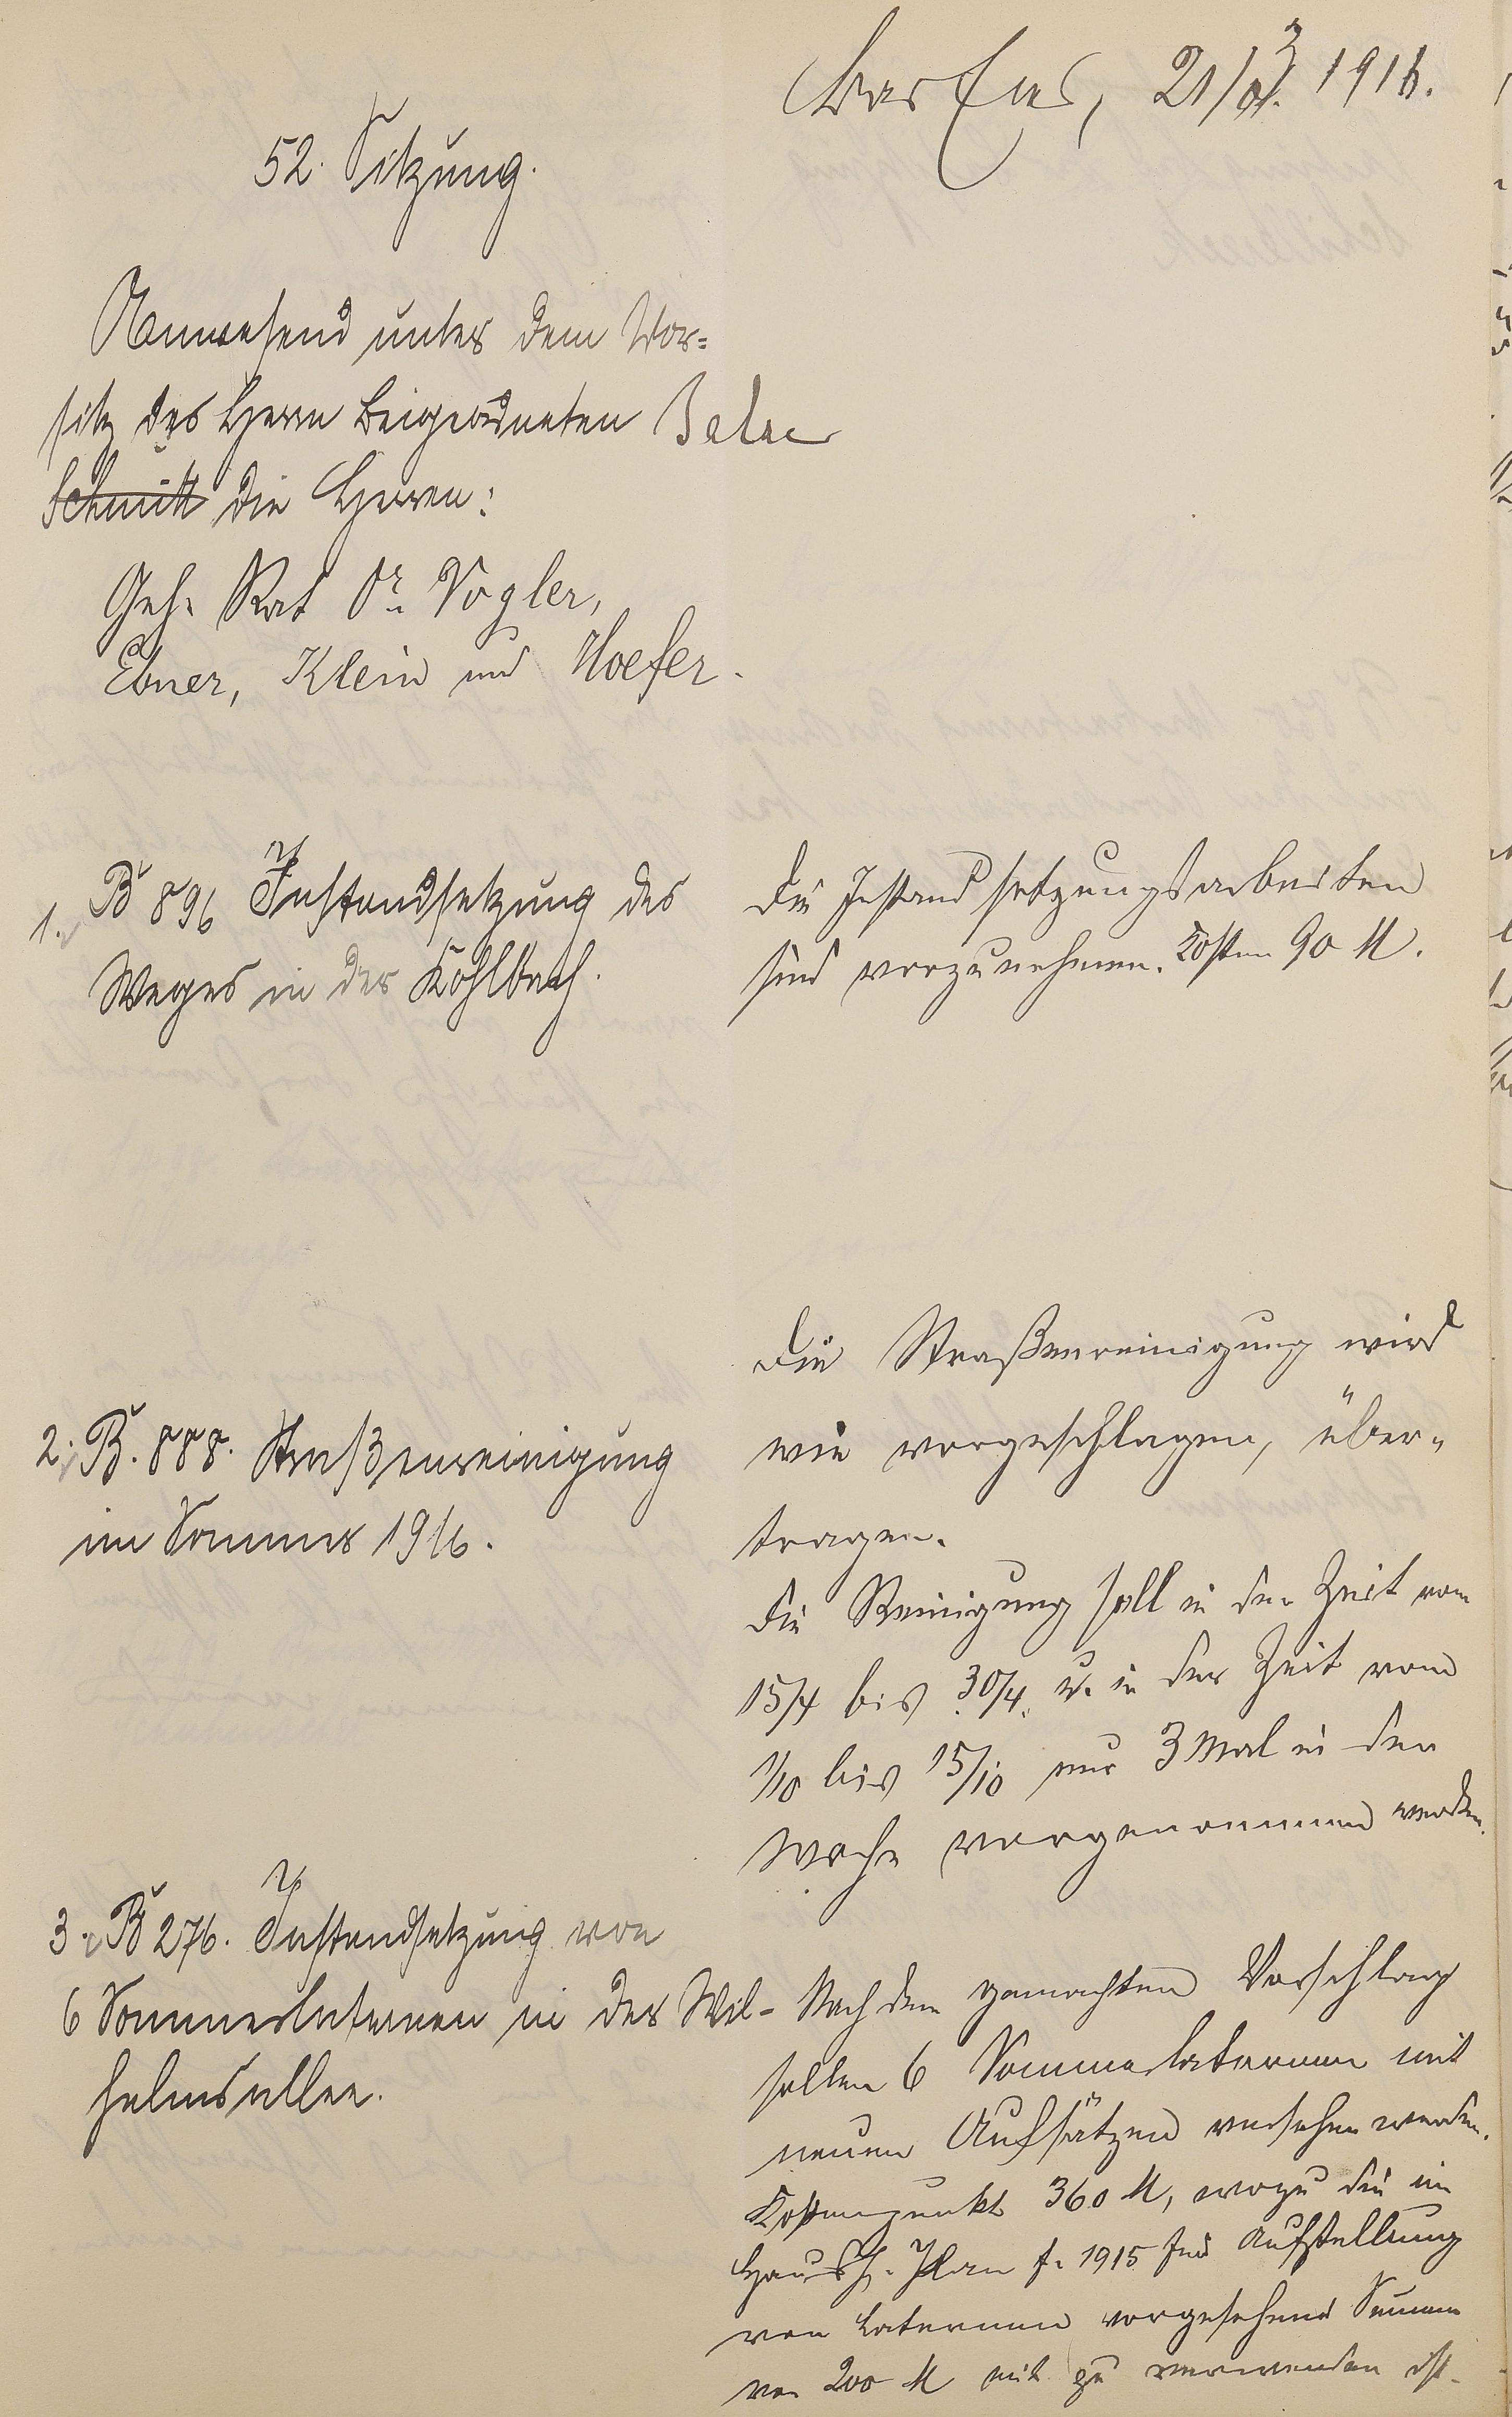 Bad Ems, 21/3. 1916.
52. Sitzung.
Anwesend unter dem Vor=
sitz des Herrn Beigeordneten Balzer
Schmitt die Herren:
Geh. Rat Dr. Vogler,
Ebner, Klein und Hoefer.
1. B 896 Instandsetzung des
Weges in der Kohlbach.
Die Instandsetzungsarbeiten
sind vorzunehmen. Kosten 90 M.
2. B. 888. Straßenreinigung
im Sommer 1916.
Die Straßenreinigung wird
wie vorgeschlagen, über-
tragen.
Die Reinigung soll in der Zeit vom
15/4 bis 30/4. u. in der Zeit vom
1/10 bis 15/10 nur 3 Mal in der
Woche vorgenommen werden.
3. B 276. Instandsetzung von
6 Sommerlaternen in der Wil-
helmsallee.
Nach dem gemachten Vorschlag
sollen 6 Sommerlaternen mit
neuen Aufsätzen versehen werden.
Kostenpunkt 360 M, wozu die im
Haush. Plan f. 1915 für Aufstellung
von Laternen vorgesehene Summe
von 200 M mit zu verwenden ist.